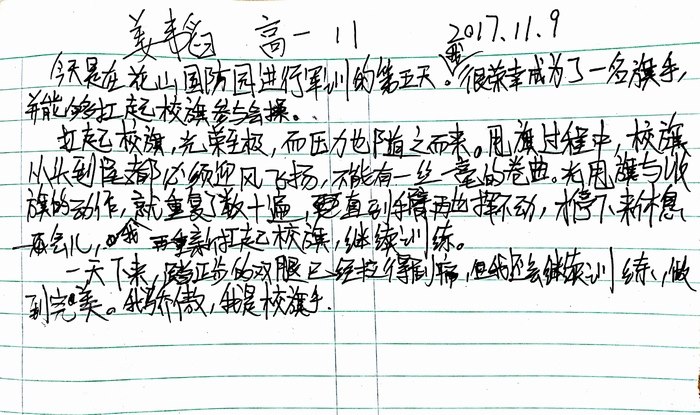 姜韦韬 高一 11 2017.11.9
今天是在花山国防园进行军训的第五天。我很荣幸成为了一名旗手,
并能够扛起校旗参与会操。
扛起校旗,光荣至极,而压力也随之而来。甩旗过程中,校旗
从头到尾都必须迎风飞扬,不能有一丝一毫的卷曲。光甩旗与收
旗的动作,就重复了数十遍,直到手臂再也挥不动,才停下来休息
一会儿,我再重新扛起校旗,继续训练。
一天下来,踢正步的双腿已经拉得剧痛,但我还会继续训练,做
到完美。我骄傲,我是校旗手.